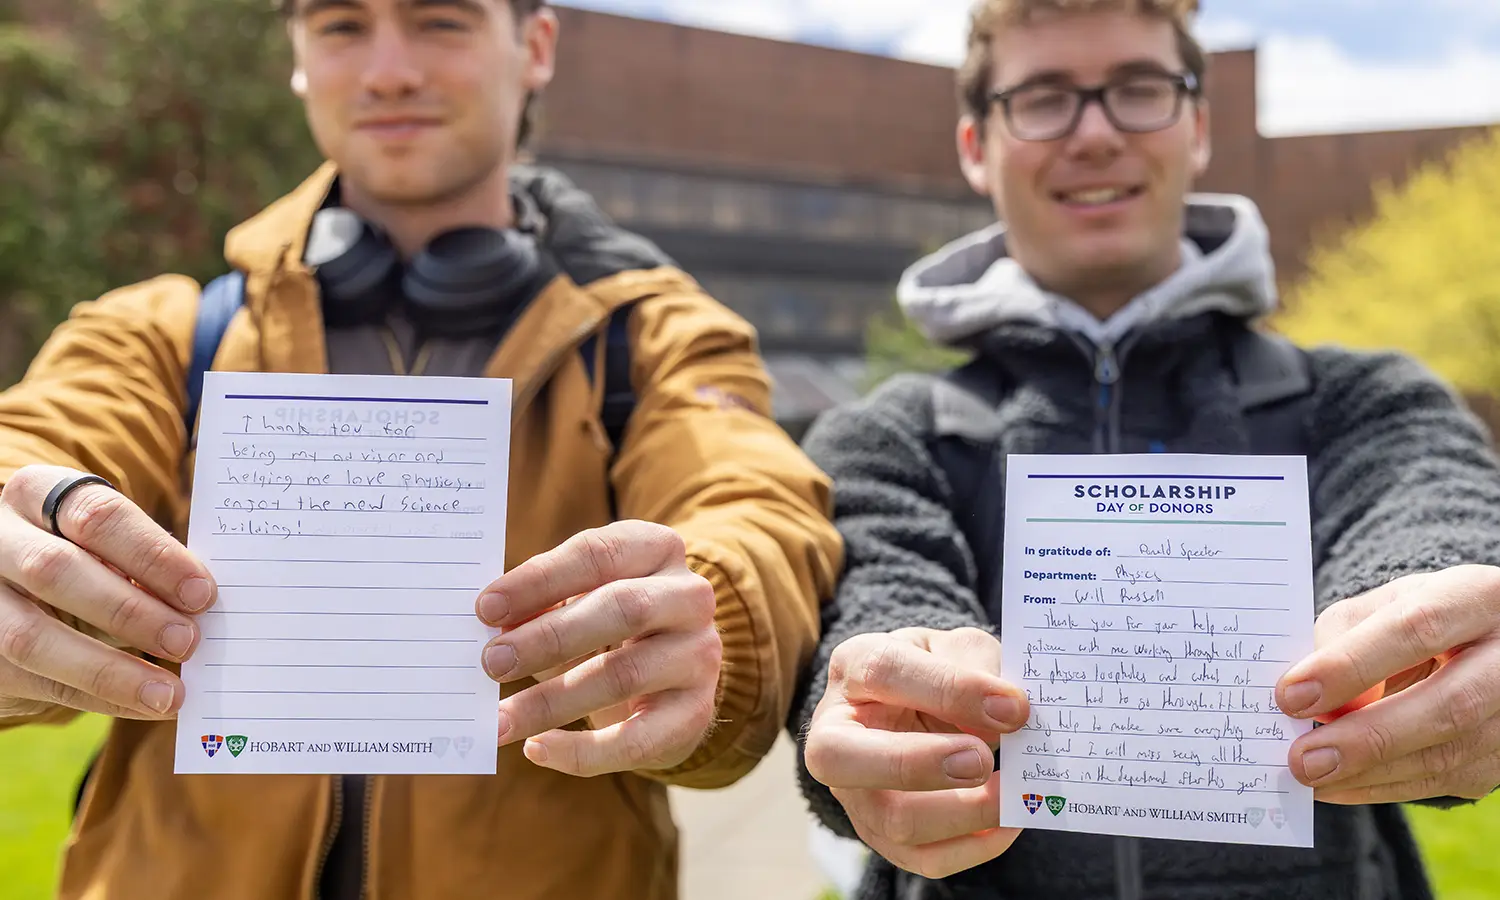 Thank you for
being my advisor and
helping me love physics.
enjoy the new science
building!
HOBART AND WILLIAM SMITH
SCHOLARSHIP
DAY OF DONORS
In gratitude of: Donald Spector
Department: Physics
From: Will Russell
Thank you for your help and
patience with me working through all of
the physics loopholes and what not
I have had to go through. It has be
a big help to make sure everything works
out and I will miss seeing all the
professors in the department after this year!
HOBART AND WILLIAM SMITH